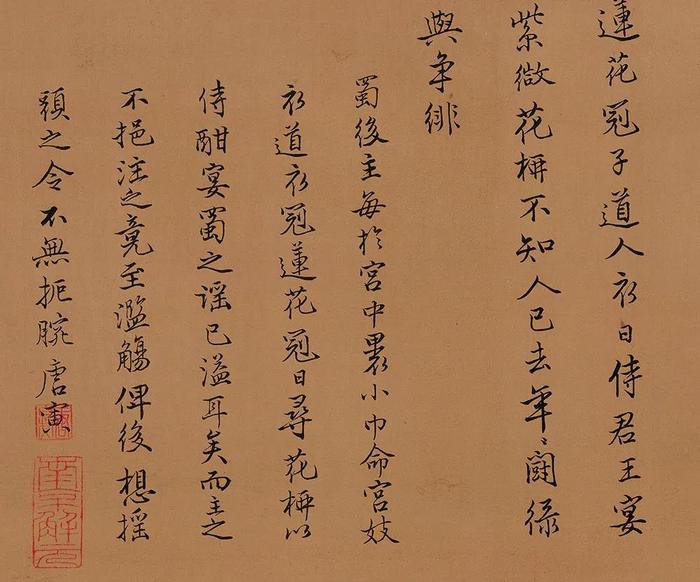 蓮花冠子道人衣日侍君王宴
紫微花柳不知人已去年〻鬪綠
與爭緋
蜀後主每於宮中裹小巾命宮妓
衣道衣冠蓮花冠日尋花柳以
侍酣宴蜀之謠已溢耳矣而主之
不挹注之竟至濫觴俾後想搖
頭之令不無扼腕唐寅
南京解元